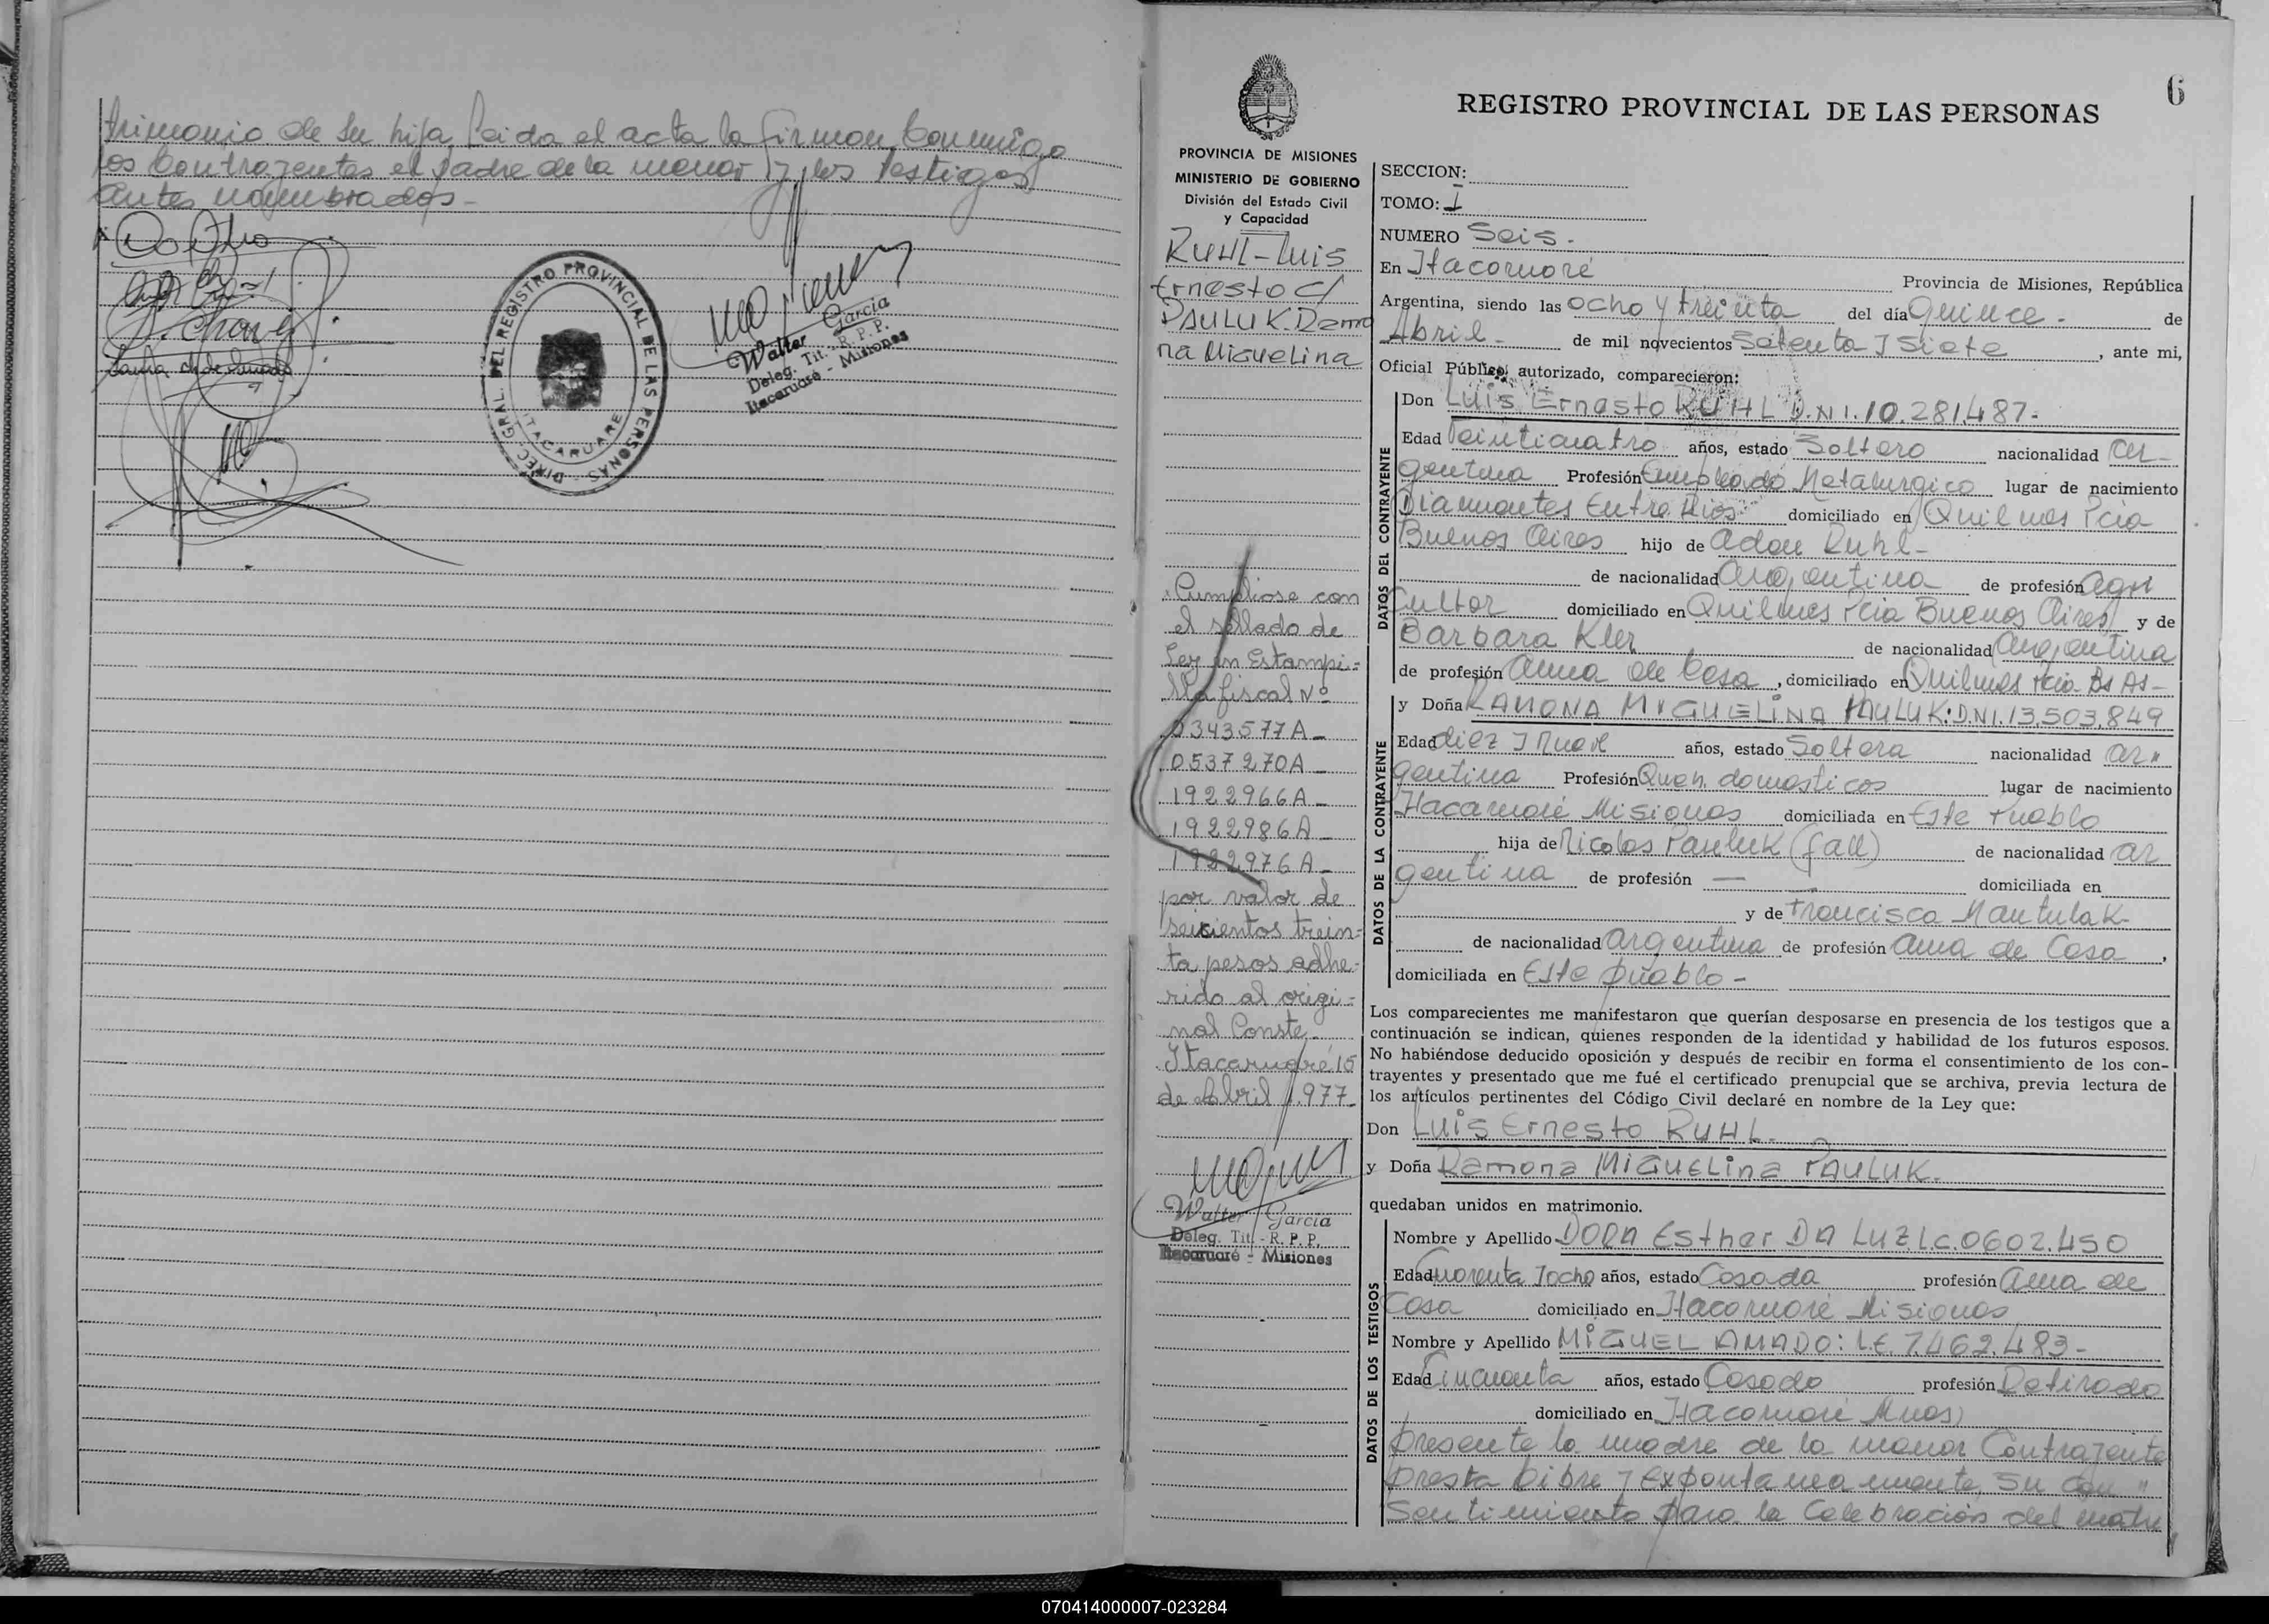 trimonio de su hija, leida el acta la firman Conmigo
los Contrayentes el padre de la menor y los testigos
antes nombrados.-
DIREC. GRAL. DEL REGISTRO PROVINCIAL DE LAS PERSONAS
ITACARUARE
Walter García
Deleg. Tit. - R. P. P.
Itacaruaré - Misiones
6
REGISTRO PROVINCIAL DE LAS PERSONAS
PROVINCIA DE MISIONES
MINISTERIO DE GOBIERNO
División del Estado Civil
y Capacidad
RUHL-Luis
Ernesto c/
PAULUK-Ramo
na Miguelina
Cumpliose con
el sellado de
Ley en Estampi=
lla fiscal Nº
0343577A-
0537270A-
1922966A-
1922986A-
1922976A-
por valor de
seicientos trein=
ta pesos adhe-
rido al origi=
nal Conste
Itacaruaré 15
de Abril 1.977-
Walter García
Deleg. Tit. - R. P. P.
Itacaruaré - Misiones
SECCION:
TOMO: I
NUMERO Seis.-
En Itacaruaré Provincia de Misiones, República
Argentina, siendo las ocho y treinta del día Quince.- de
Abril.- de mil novecientos Setenta y Siete, ante mi,
Oficial Público, autorizado, comparecieron:
DATOS DEL CONTRAYENTE
Don Luis Ernesto RUHL D.N.I. 10.281.487.-
Edad Veinticuatro años, estado Soltero nacionalidad ar-
gentina Profesión Empleado Metalurgico lugar de nacimiento
Diamantes Entre Rios domiciliado en Quilmes Pcia
Buenos Aires hijo de Adan Ruhl-
de nacionalidad Argentina de profesión agri
cultor domiciliado en Quilmes Pcia Buenos Aires y de
Barbara Kler de nacionalidad Argentina
de profesión Ama de Casa, domiciliado en Quilmes Pcia Bs As-
DATOS DE LA CONTRAYENTE
y Doña RAMONA MIGUELINA PAULUK: D.NI. 13.503.849
Edad diez y nueve años, estado Soltera nacionalidad ar"
gentina Profesión Queh. domesticos lugar de nacimiento
Itacaruaré Misiones domiciliada en Este Pueblo
hija de Nicolas Pauluk (fall) de nacionalidad ar
gentina de profesión — domiciliada en
y de Francisca Mantulak-
de nacionalidad argentina de profesión ama de Casa,
domiciliada en Este pueblo-
Los comparecientes me manifestaron que querían desposarse en presencia de los testigos que a
continuación se indican, quienes responden de la identidad y habilidad de los futuros esposos.
No habiéndose deducido oposición y después de recibir en forma el consentimiento de los con-
trayentes y presentado que me fué el certificado prenupcial que se archiva, previa lectura de
los artículos pertinentes del Código Civil declaré en nombre de la Ley que:
Don Luis Ernesto RUHL-
y Doña Ramona MIGUELina PAULUK.
quedaban unidos en matrimonio.
DATOS DE LOS TESTIGOS
Nombre y Apellido DORA Esther DA LUZ L.C. 0602.450
Edad Cuarenta yocho años, estado Casada profesión ama de
Casa domiciliado en Itacaruaré Misiones
Nombre y Apellido MIGUEL AMADO: L.E. 7.462.483-
Edad Cincuenta años, estado Casado profesión Retirado
domiciliado en Itacaruaré Mnes)
presente la madre de la menor Contrayente
presta libre y expontaneamente su con"
sentimiento para la Celebración del matri
070414000007-023284